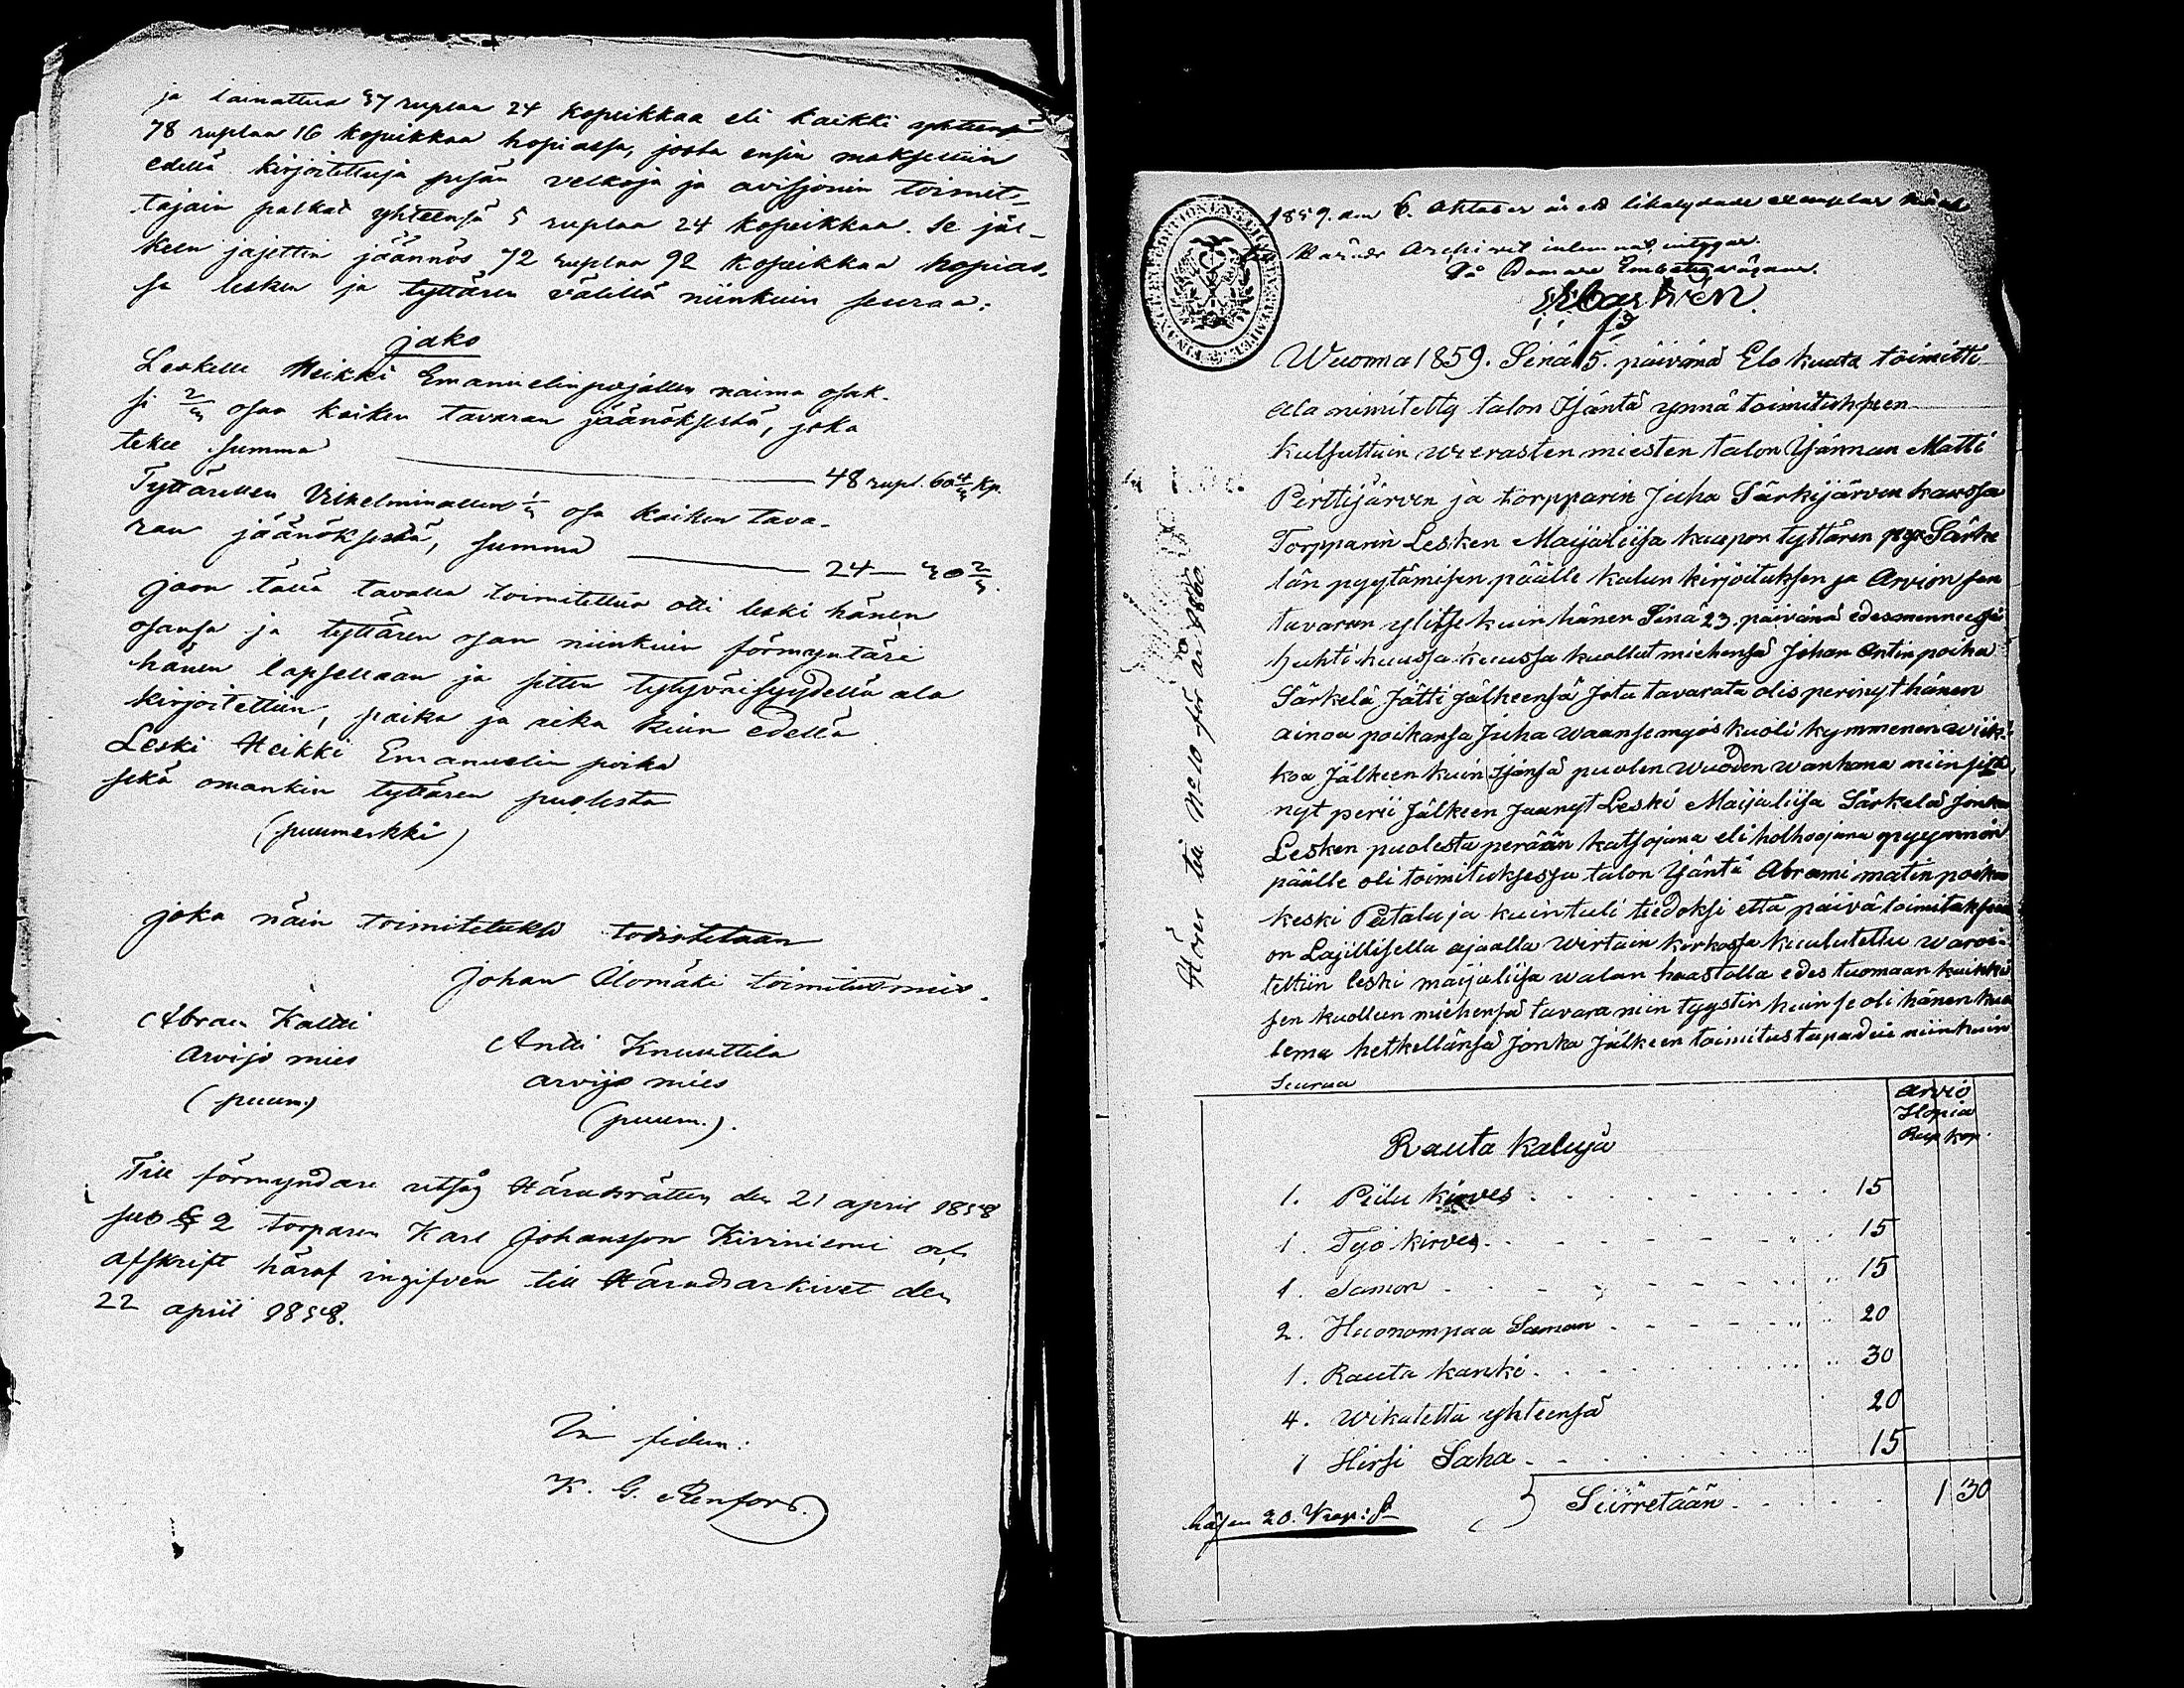 ja lainattua 37 ruplaa 24 kopeikkaa eli kaikki yhteensä
78 ruplaa 16 kopeikkaa hopiassa, josta ensin maksettiin
edellä kirjoitettuja pesän velkoja ja toimit-
tajain palkat yhteensä 5 ruplaa 24 kopeikkaa. Se jäl-
keen jajettiin jäännös 72 ruplaa 92 kopeikkaa hopias-
sa lesken ja tyttären välillä niinkuin seuraa:
jako
Leskelle Heikki Emanuelinpojallen naima osak-
si 2/3 osaa kaiken tavaran jäänöksestä, joka
tekee summa 48 rupl. 60 4/3 Kp.
Tyttärellen Vilhelminallen 1/3 osa kaiken tava-
ran jäänöksestä, summa 24 — 30 2/3.
Jaon tällä tavalla toimitettua otti leski hänen
osansa ja tyttären osan niinkuin förmyntäri
hänen lapsellaan ja sitten tytyväisyydellä ala
kirjoitettiin, paika ja aika kuin edellä
Leski Heikki Emanuelin poika
sekä omankin tyttären puolesta
(puumerkki)
joka näin toimitetuksi todistetaan
Johan Ulomäki toimitusmies.
Abram Kaltti
Arvijo mies
(puum.)
Antti Knuuttila
arvijo mies
(puum.).
Till förmyndare utsåg Häradsrätten den 21 april 1858
sub § 2 torparen Karl Johansson Kiviniemi och
afskrift häraf ingifven till Häradsarkivet den
22 april 1858.
In fidem:
K. G. Renfors.
1859. den 6. Oktober är ett likalydande exemplar häraf
till Härads Archivet inlemnat, intygar.
På Domare Embetets vägnar.
Wuonna 1859. Sinä 15. päivänä Elo kuuta toimitti
ala nimitetty talon Isäntä ynnä toimituhseen
kutsuttuin wierasten miesten talon Isännan Matti
Perttijärven ja törpparin Juha Särkijärven kanssa
Torpparin Lesken Maijaliisa kaapon tyttären Särke
län pyytämisen päälle kalun kirjoituksen ja Arvion sen
tavaran ylitse kuin hänen Sinä 23 päivänä edesmenneesä
huhti kuussa kuollut miehensä Johan Antin poika
Särkelä Jätti jälkeensä Jota tavarata olis perinyt hänen
ainoa poikansa Juha waan se myös kuoli kymmenen wiik-
koa Jälkeen kuin Isänsä puolen wuoden wanhana niin sitä
nyt perii Jälkeen Jäänyt Leski Maijaliisa Särkelä Jonka
Lesken puolesta perään katsojana eli holhoojana pyynnön
päälle oli toimituksessa talon Isäntä Abrami matin poika
keski Pötalu ja kuin tuli tiedoksi että päivä toimituksen
on Lajillisella ajaalla Wirtain kirkossa kuulutettu waroi-
tettiin leski maijaliisa walan haastolla edes tuomaan kaikki
sen kuolleen miehensä tavara niin tyystin kuin se oli hänen kuo
lema hetkellänsä Jonka Jälkeen toimitus tapadui niinkuin
Seuraa
Hörer till No 10 för år 1860.
Arvio
Hopia
Rup kop.
Rauta kaluja
1. Piilu kirves 15
1. Työ kirves 15
1. Samon 15
2. Huonompaa Saman 20
1. Rauta kanki 30
4. Wikatetta yhteensä 20
1 Hirsi Saha 15
Siirretään 1 30
lösen 20. Kop: S